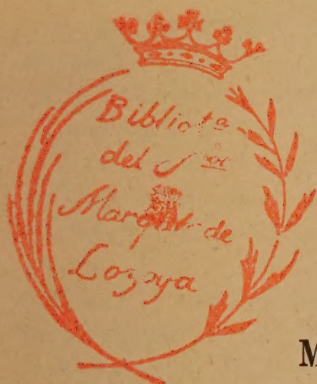 Biblioteca
del Sr.
Marqués de
Lozoya
M